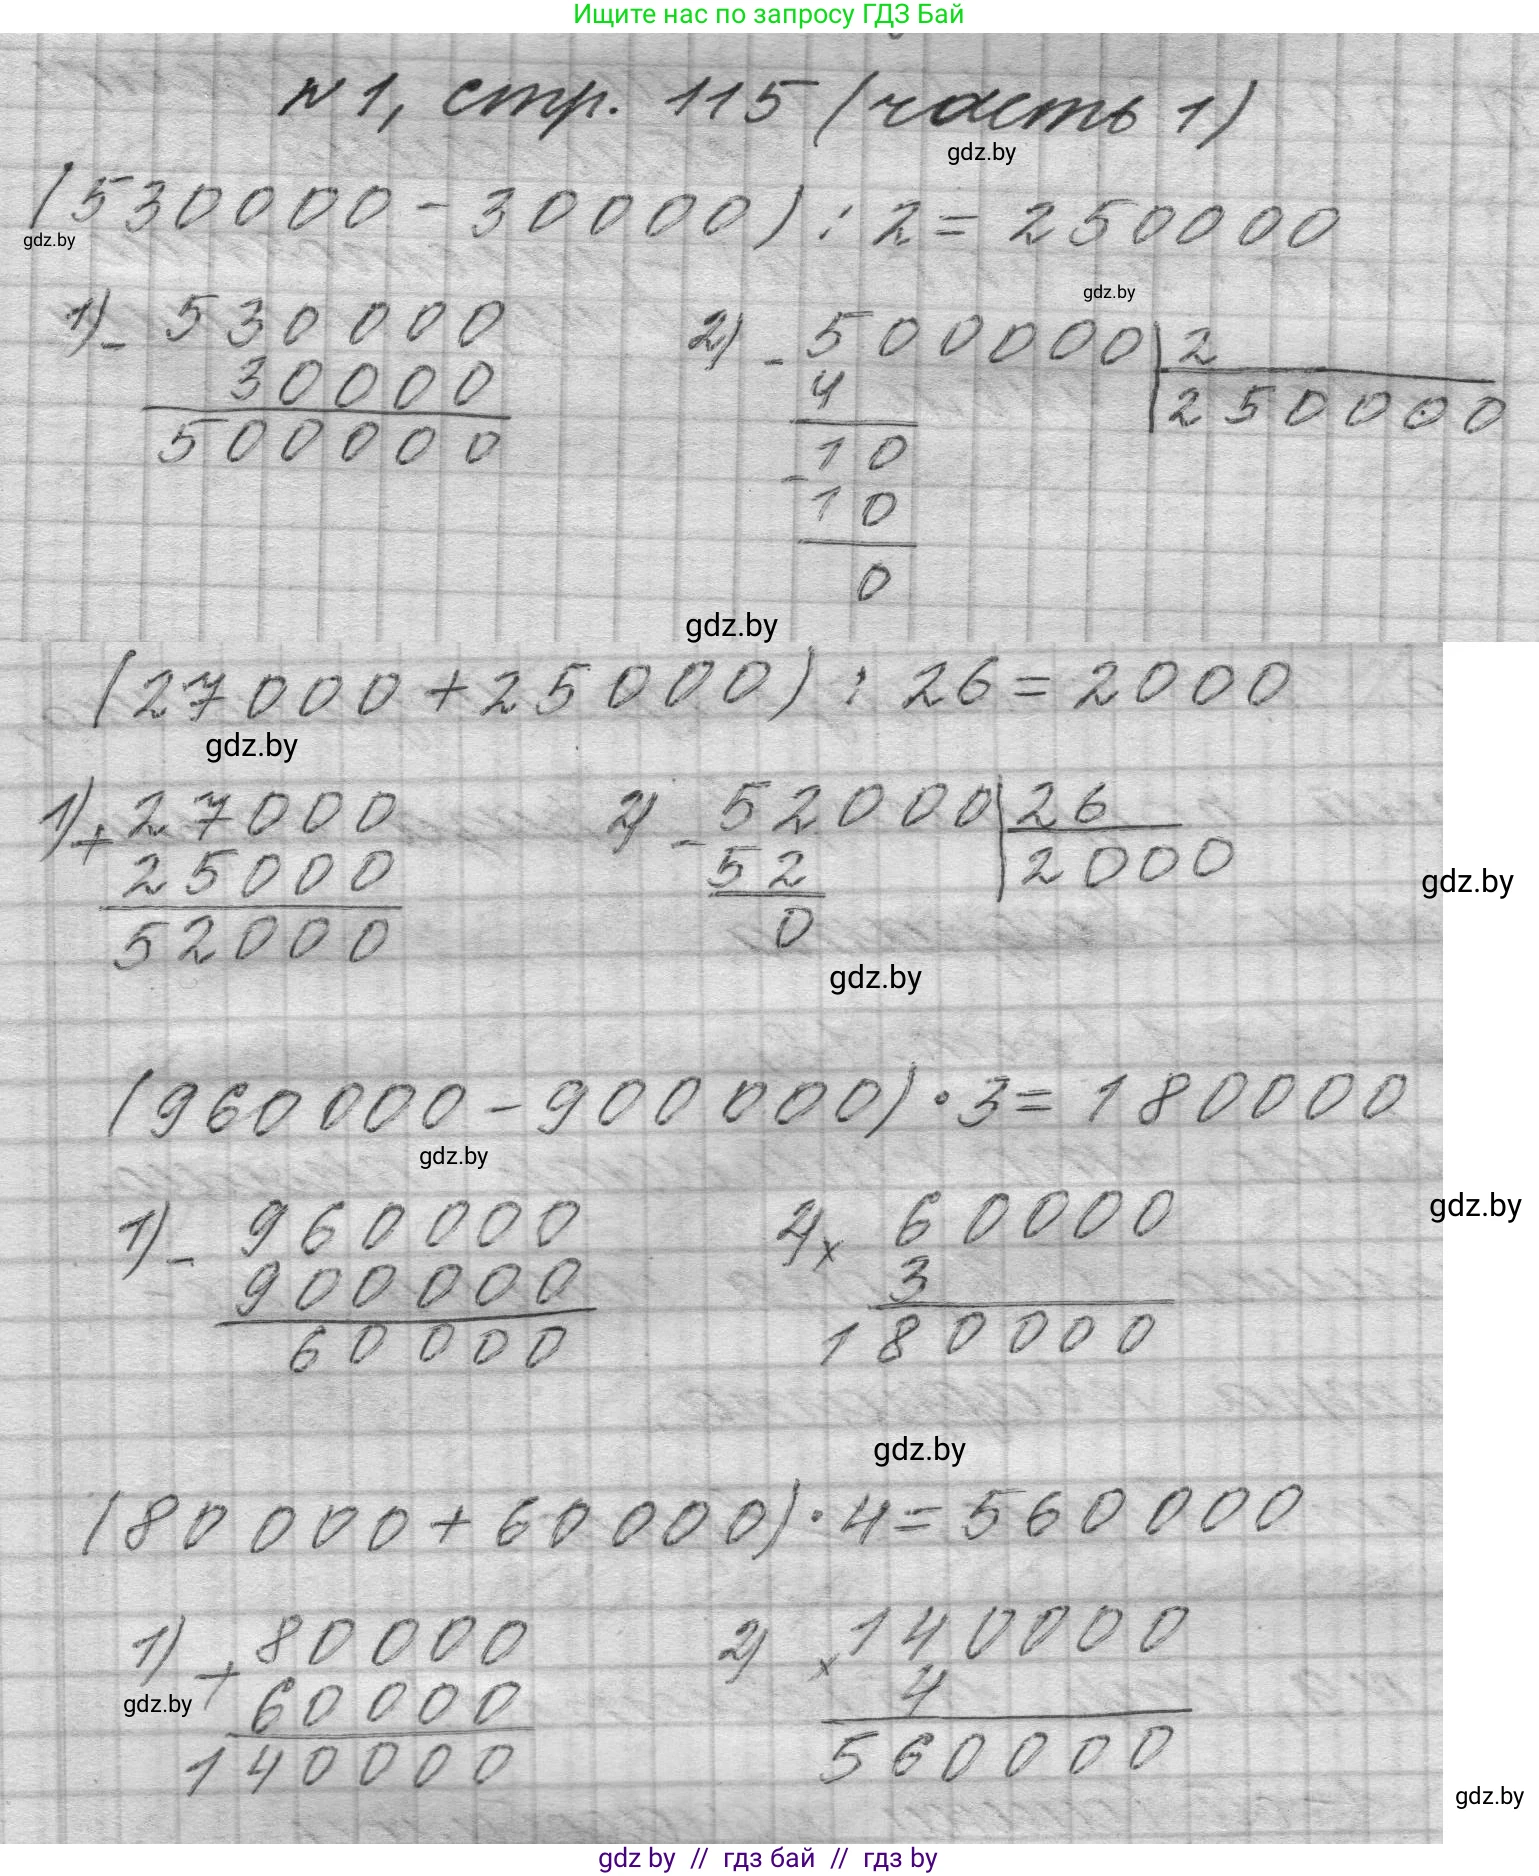 Ищите нас по запросу ГДЗ Бай
№1, стр. 115 (часть 1)
gdz.by
(530000 - 30000) : 2 = 250000
gdz.by
gdz.by
1) - 530000
30000
500000
2) - 500000 | 2
4 250000
10
- 10
0
gdz.by
(27000 + 25000) : 26 = 2000
gdz.by
1) + 27000
25000
52000
2) - 52000 | 26
52 2000
0
gdz.by
gdz.by
(960000 - 900000) · 3 = 180000
gdz.by
1) - 960000
900000
60000
2) x 60000
3
180000
gdz.by
gdz.by
(80000 + 60000) · 4 = 560000
1) + 80000
60000
140000
gdz.by
2) x 140000
4
560000
gdz.by
gdz by // гдз бай // гдз by